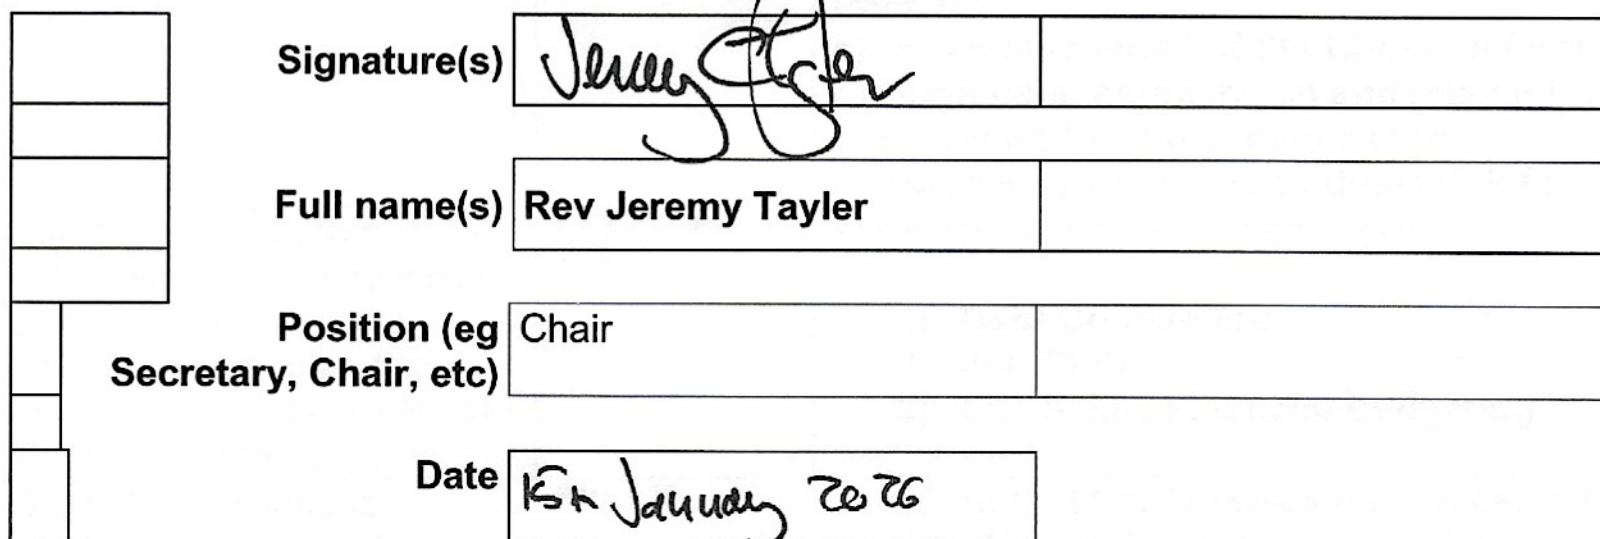 Signature(s) Jeremy Tayler
Full name(s) Rev Jeremy Tayler
Position (eg Chair
Secretary, Chair, etc)
Date 15th January 2026